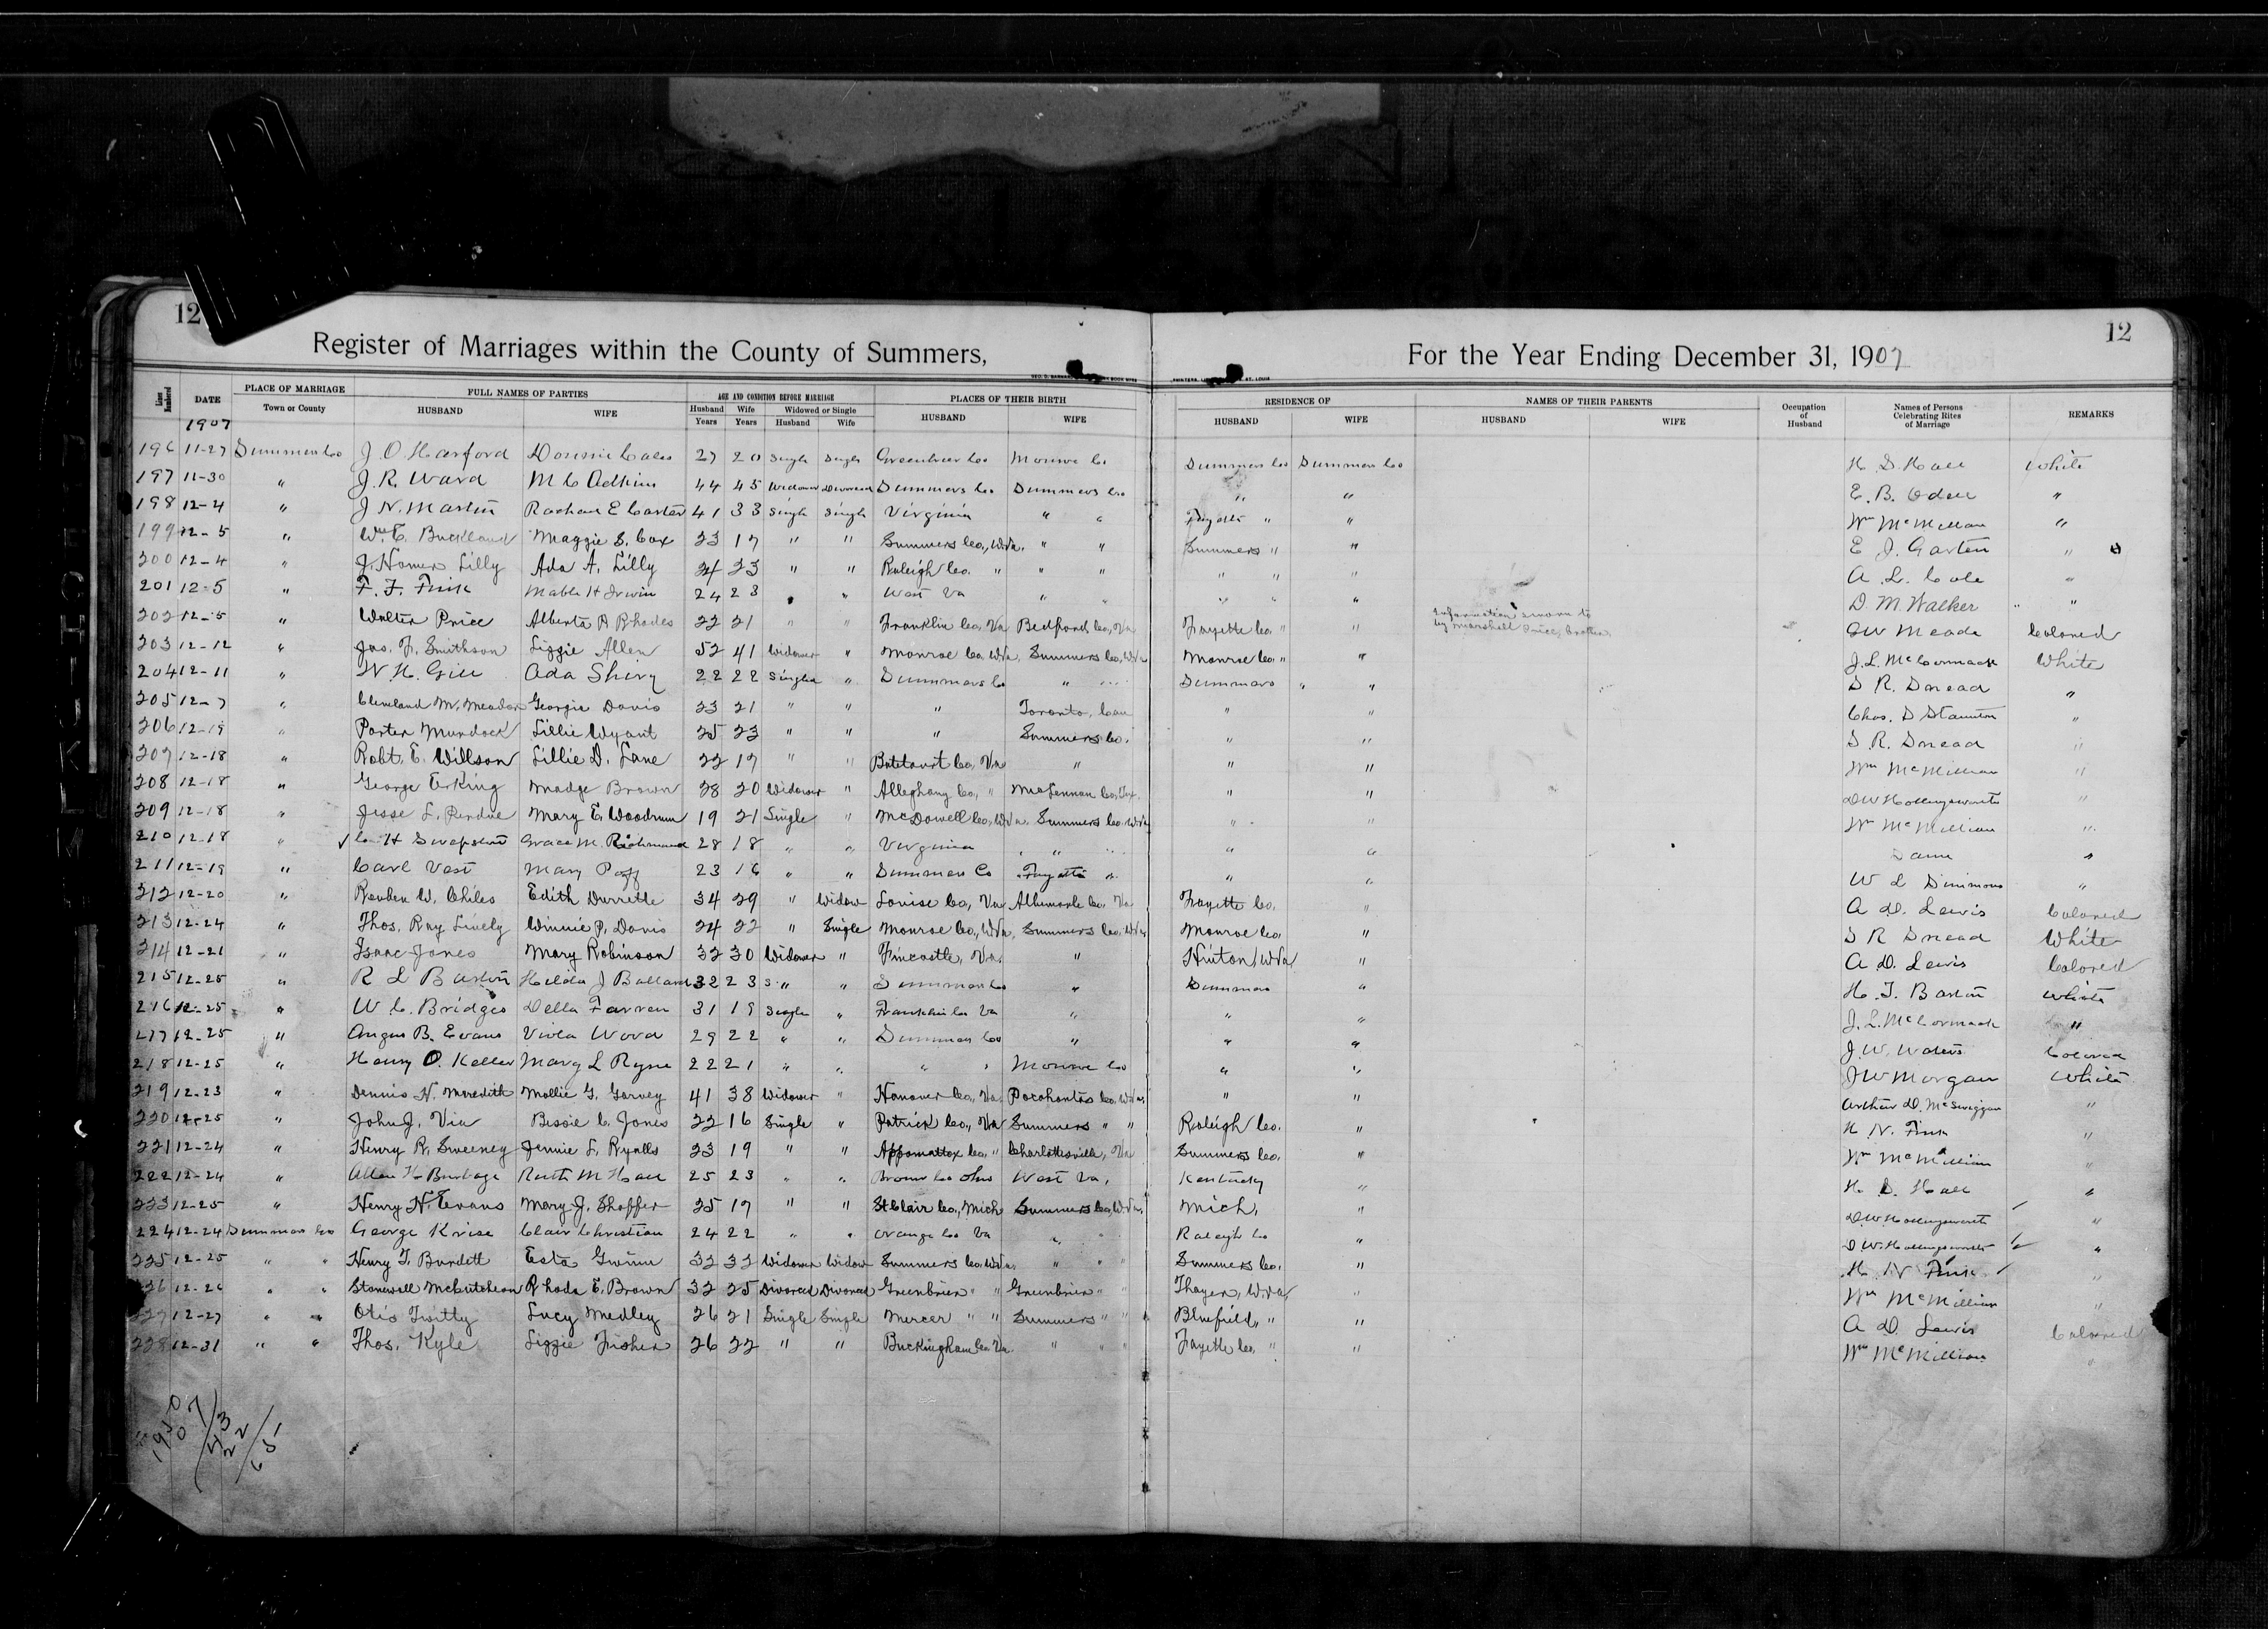 12
12
Register of Marriages within the County of Summers, For the Year Ending December 31, 1907
Lines Numbered DATE PLACE OF MARRIAGE FULL NAMES OF PARTIES AGE AND CONDITION BEFORE MARRIAGE PLACES OF THEIR BIRTH RESIDENCE OF NAMES OF THEIR PARENTS Occupation of Husband Names of Persons Celebrating Rites of Marriage REMARKS
Town or County HUSBAND WIFE Husband Years Wife Years Widowed or Single Husband Wife HUSBAND WIFE HUSBAND WIFE HUSBAND WIFE
1907
196 11-27 Summers Co J. O. Harford Donnie Cales 27 20 Single Single Greenbrier Co Monroe Co Summers Co Summers Co H. D. Hall White
197 11-30 " J. R. Ward M C Adkins 44 45 Widower Divorced Summers Co Summers Co " " E. B. Odell "
198 12-4 " J N. Martin Rachael E Carter 41 33 Single Single Virginia " " Fayette " " Wm McMillan "
199 12-5 " Wm. E. Buckland Maggie S. Cox 23 17 " " Summers Co., W.Va. " " Summers " " E J. Garten "
200 12-4 " J. Homer Lilly Ada A. Lilly 24 23 " " Raleigh Co. " " " " " " A. L. Cole "
201 12-5 " F. F. Fink Mable H Irwin 24 23 " " West Va " " " " " D. M. Walker " "
202 12-5 " Walter Price Alberta A Rhodes 22 21 " " Franklin Co, Va Bedford Co, Va Fayette Co. " " Information sworn to by Marshall Price, brother GW Meade Colored
203 12-12 " Jas. F. Smithson Lizzie Allen 52 41 Widower " Monroe Co. W.Va. Summers Co, W.Va Monroe Co. " " J. L. McCormack White
204 12-11 " W. H. Gill Ada Shivy 22 22 Single " Summers Co " Summers " " S R. Snead
205 12-7 " Cleveland M. Meador Georgia Davis 23 21 " " " Toronto, Can " " Chas. S Staunton "
206 12-19 " Porter Murdock Lillie Wyant 25 23 " " " Summers Co. " " S R. Snead "
207 12-18 " Robt. E. Willson Lillie D. Lane 22 17 " " Botetourt Co, Va " " " Wm McMillian "
208 12-18 " George Erking Madge Brown 28 20 Widower " Alleghany Co., " McLennan Co, Tex. " " DW Hollingsworth "
209 12-18 " Jesse L. Perdue Mary E. Woodrum 19 21 Single " McDowell Co., W.Va. Summers Co. W.Va " " Wm McMillian "
210 12-18 " C. H Swepston Grace M. Richmond 28 18 " " Virginia " " " " Same "
211 12-19 " Carl Vest Mary Poff 23 16 " " Summers Co Fayette " " " W L Simmons "
212 12-20 " Reuben W. Chiles Edith Durrette 34 29 " Widow Louise Co, Va Albemarle Co, Va Fayette Co. " A D. Lewis Colored
213 12-24 " Thos. Ray Lively Winnie P. Davis 24 22 " Single Monroe Co., W.Va. Summers Co. W.Va Monroe Co. " S R Snead White
214 12-21 " Isaac Jones Mary Robinson 32 30 Widower " Fincastle, Va. " Hinton, W.Va " A D. Lewis Colored
215 12-25 " R L Barton Hilda J Ballard 32 23 S " " Summers Co " Summers " H. T. Barton White
216 12-25 " W. C. Bridges Della Farren 31 19 Single " Franklin Co Va " " " J. L. McCormack "
217 12-25 " Angus B. Evans Viola Wood 29 22 " " Summers Co " " " J. W. Waters Colored
218 12-25 " Henry O. Keller Mary L Ryne 22 21 " " " " Monroe Co " " J W Morgan White
219 12-23 " Dennis N. Meredith Mollie G. Garvey 41 38 Widower " Hanover Co., Va. Pocahontas Co, W.Va. " " Arthur D. McSwiggan "
220 12-25 " John J. Via Bessie C. Jones 22 16 Single " Patrick Co., Va Summers " " Raleigh Co. " H. N. Fink "
221 12-24 " Henry R. Sweeney Jennie L. Ryalls 23 19 " " Appomattox Co. " Charlottesville, Va Summers Co. " Wm McMillian "
222 12-24 " Allen H Burbage Ruth M Hall 25 23 " " Brown Co Ohio West Va, Kentucky " H. D. Hall "
223 12-25 " Henry N. Evans Mary J. Shaffer 25 19 " " St Clair Co., Mich Summers Co, W.Va. Mich, " DW Hollingsworth "
224 12-24 Summers Co George Krise Clair Christian 24 22 " " Orange Co Va " " Raleigh Co " D W. Hollingsworth "
225 12-25 " " Henry T. Burdett Esta Gwinn 32 32 Widower Widow Summers Co. W.Va. " " " Summers Co. " H. N Fink "
226 12-26 " " Stonewall McCutcheon Rhoda E. Brown 32 25 Divorced Divorced Greenbrier " " Greenbrier " " Thayer, W.Va, " Wm McMillian "
227 12-27 " " Otis Twitty Lucy Medley 26 21 Single Single Mercer " " Summers " " Bluefield, " " A D. Lewis Colored
228 12-31 " " Thos. Kyle Lizzie Fisher 26 22 " " Buckingham Co. Va. " " " Fayette Co. " " Wm McMillian "